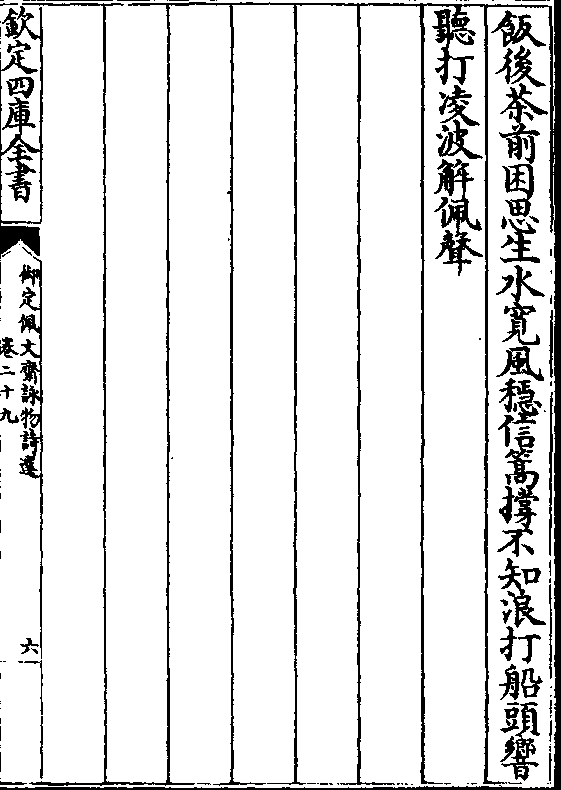 飯後茶前困思生水寛風穩信篙撑不知浪打船頭響
聽打凌波解佩聲
欽定四庫全書
御定佩文齋詠物詩選
卷二十九
六